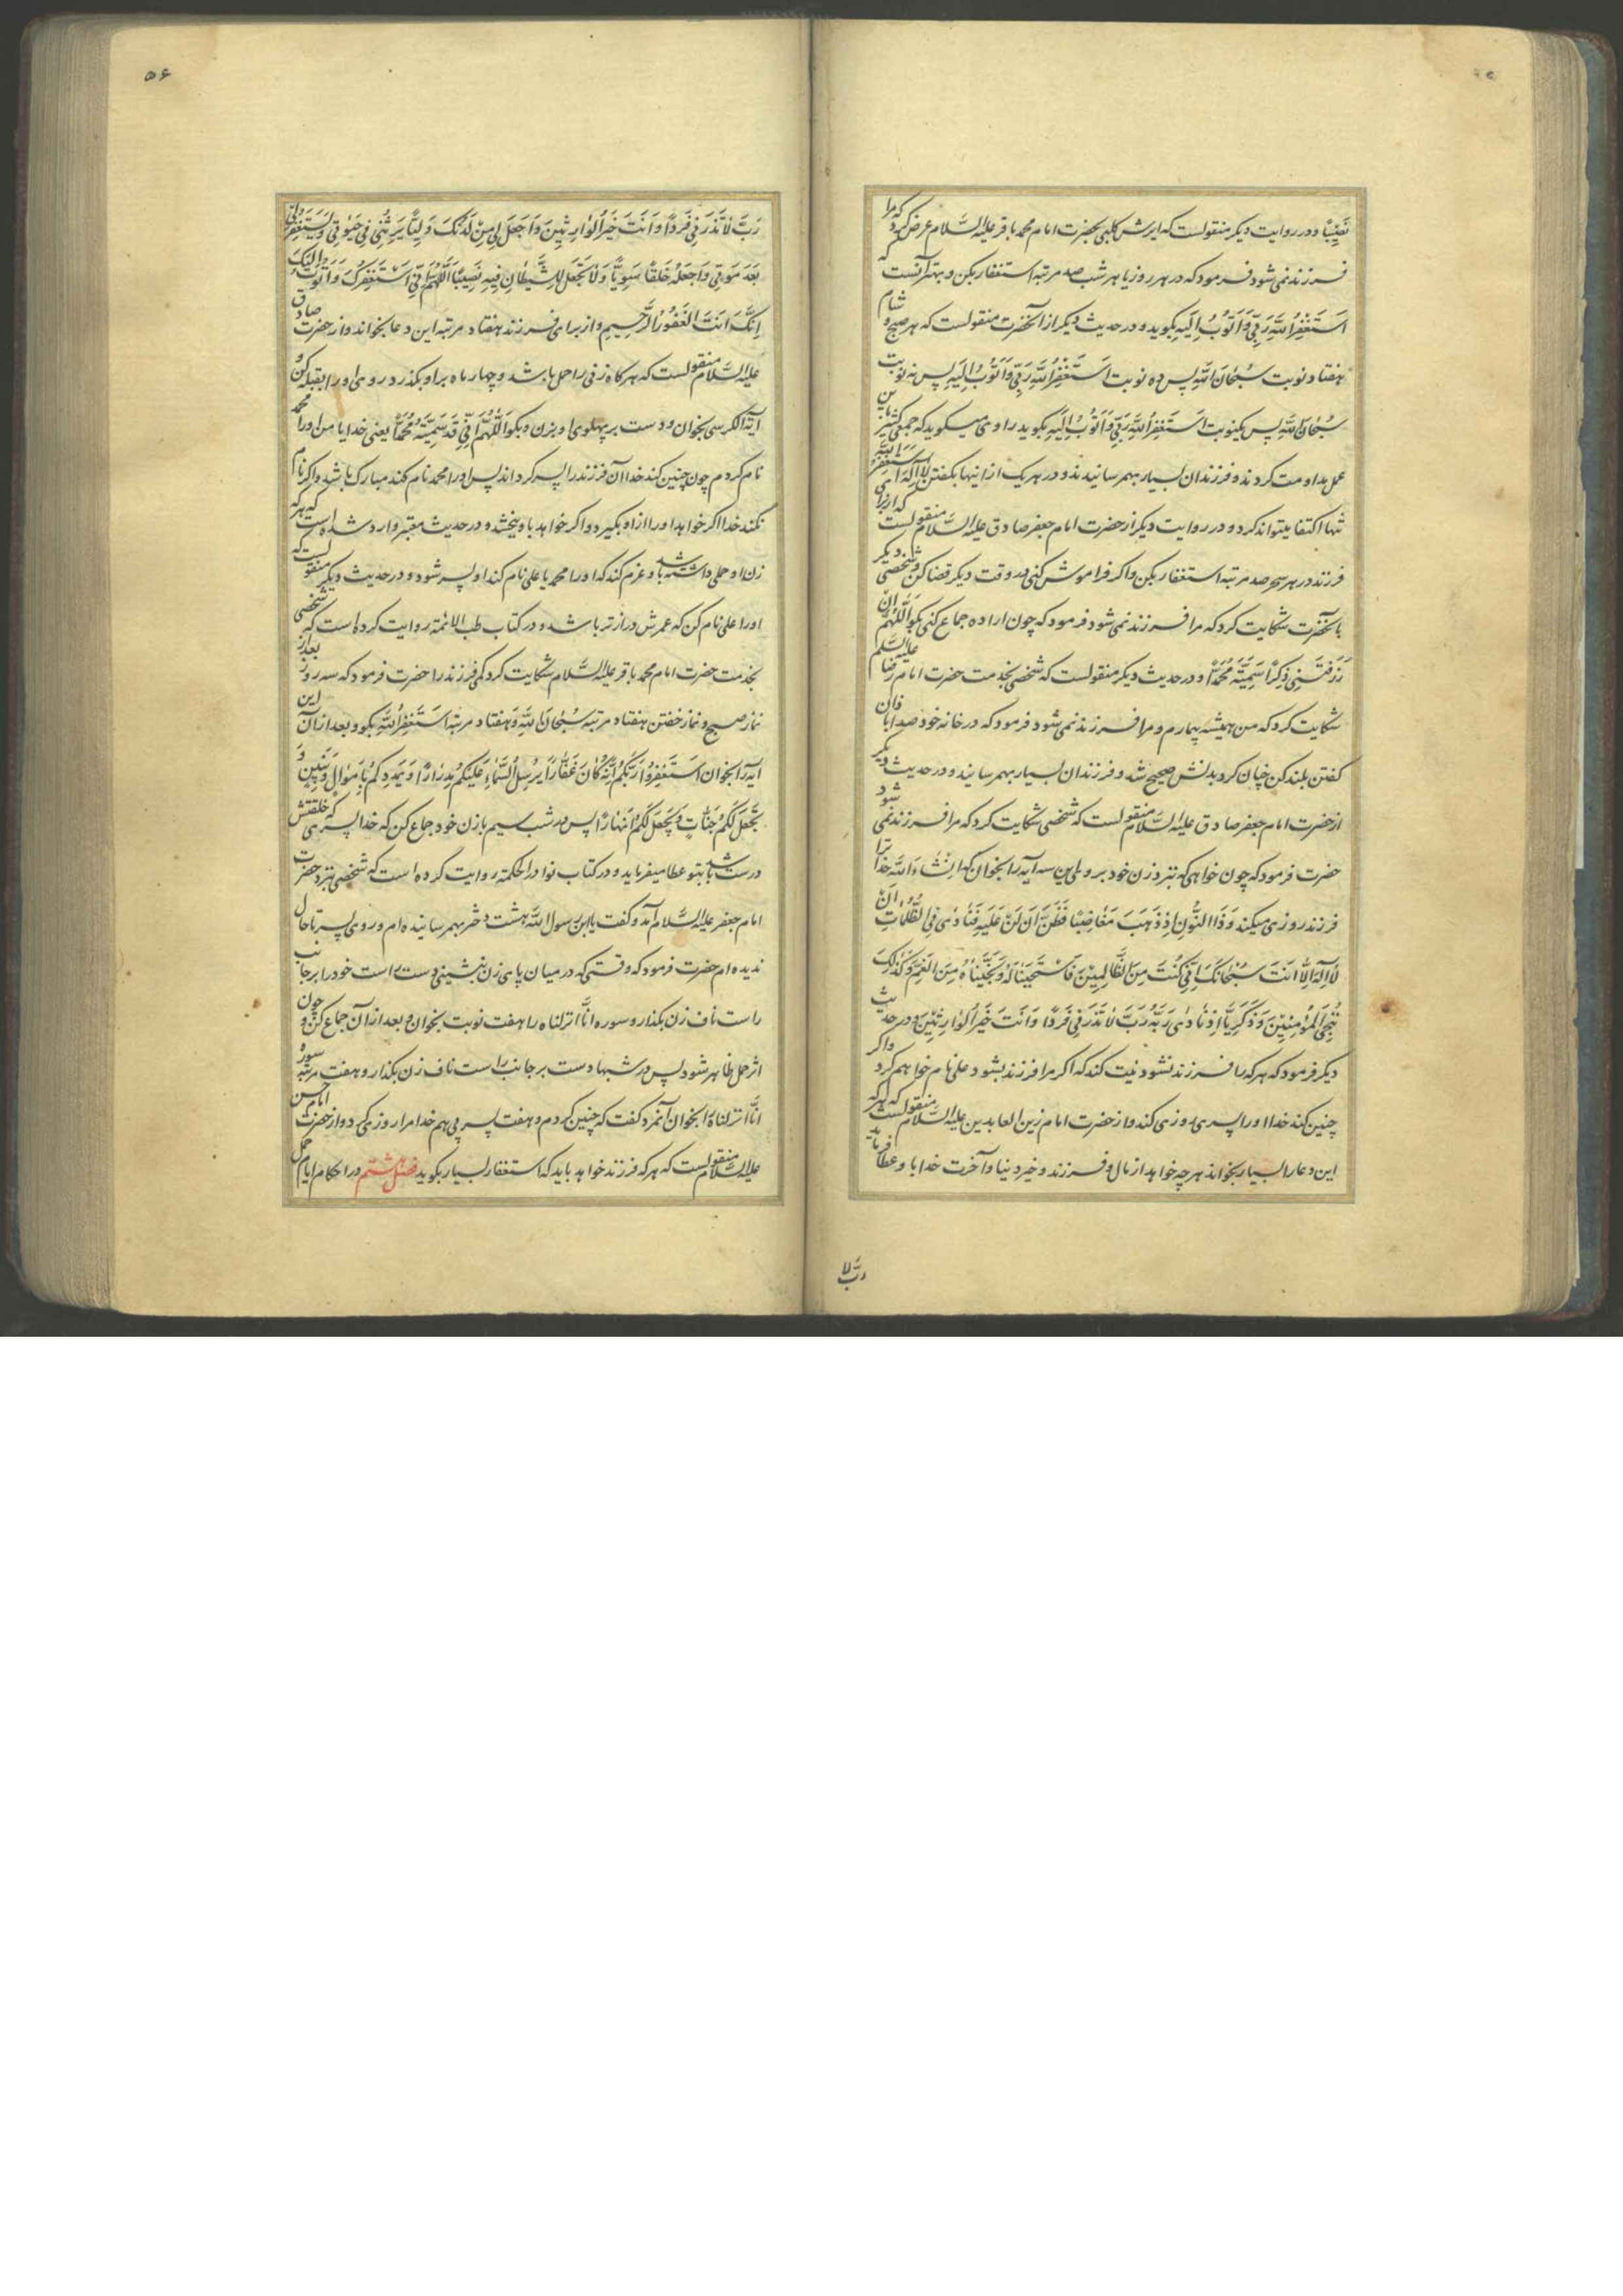 نَصِیْبًا و در روایت دیکر منقولست که ابرش کلبی بحضرت امام محمد باقر علیه السَّلام عرض کرد که مرا
فرزند نمی شود فرمود که در هر روز یا هر شب صد مرتبه استغفار بکن و بهتر آنست که
اَسْتَغْفِرُ اللّٰهَ رَبّی وَاَتُوبُ اِلَیهِ بکوید و در حدیث دیکر از آنحضرت منقولست که هر صبح و شام
هفتاد نوبت سُبْحَانَ اللّٰهِ پس ده نوبت اَسْتَغْفِرُ اللّٰهَ رَبّی وَاَتُوبُ اِلَیهِ پس نه نوبت
سُبْحَانَ اللّٰهِ پس یکنوبت اَسْتَغْفِرُ اللّٰهَ رَبّی وَاَتُوبُ اِلَیهِ بکوید راوی میکوید که جمعی کثیر باین
عمل مداومت کردند و فرزندان بسیار بهمرسانیدند و در هر یک از اینها بکفتن اَسْتَغْفِرُ اللّٰهَ
تنها اکتفا میتواند کرد و در روایت دیکر از حضرت امام جعفر صادق علیه السَّلام منقولست که از برای
فرزند در هر سحر صد مرتبه استغفار بکن و اکر فراموش کنی در وقت دیکر قضا کن و شخصی دیکر
بآنحضرت شکایت کرد که مرا فرزند نمی شود فرمود که چون اراده جماع کنی بکو اَللّٰهُمَّ اِنْ
رَزَقْتَنی ذِکَرًا سَمَّیْتُهُ مُحَمَّدًا و در حدیث دیکر منقولست که شخصی بخدمت حضرت امام رضا علیه السلم
شکایت کرد که من همیشه بیمارم و مرا فرزند نمی شود فرمود که در خانه خود صدا باذان
کفتن بلند کن چنان کرد بدنش صحیح شد و فرزندان بسیار بهمرسانید و در حدیث دیکر
از حضرت امام جعفر صادق علیه السَّلام منقولست که شخصی شکایت کرد که مرا فرزند نمی شود
حضرت فرمود که چون خواهی که بنزد زن خود بروی این سه آیه را بخوان که انشاء اللّٰه خدا ترا
فرزند روزی میکند وَذَا النُّونِ اِذْ ذَهَبَ مُغَاضِبًا فَظَنَّ اَنْ لَنْ عَلَیهِ فَنَادٰی فِی الظُّلُمَاتِ اَنْ
لَا اِلٰهَ اِلَّا اَنْتَ سُبْحَانَکَ اِنّی کُنْتُ مِنَ الظَّالِمِیْنَ فَاسْتَجَبْنَا لَهُ وَنَجَّیْنَاهُ مِنَ الْغَمِّ وَکَذٰلِکَ
نُنْجِی الْمُؤْمِنِیْنَ وَزَکَرِیَّا اِذْ نَادٰی رَبَّهُ رَبِّ لَا تَذَرْنی فَرْدًا وَاَنْتَ خَیْرُ الْوَارِثِیْنَ و در حدیث
دیکر فرمود که هر که را فرزند نشود نیت کند که اکر مرا فرزند بشود علی نام خواهم کرد و اکر
چنین کند خدا او را پسری روزی کند و از حضرت امام زین العابدین علیه السَّلام منقولست که هر که
این دعا را بسیار بخواند هر چه خواهد از مال و فرزند و خیر دنیا و آخرت خدا باو عطا فرماید
ربّ لا
۵۶
رَبِّ لَا تَذَرْنی فَرْدًا وَاَنْتَ خَیْرُ الْوَارِثِیْنَ وَاجْعَلْ لی مِنْ لَدُنْکَ وَلِیًّا یَرِثُنی فی حَیٰوتی وَیَسْتَغْفِرُ لی
بَعْدَ مَوْتی وَاجْعَلْهُ خَلْقًا سَوِیًّا وَلَا تَجْعَلْ لِلشَّیْطَانِ فیهِ نَصِیْبًا اَللّٰهُمَّ اِنّی اَسْتَغْفِرُکَ وَاَتُوبُ اِلَیْکَ
اِنَّکَ اَنْتَ الْغَفُورُ الرَّحِیمِ و از برای فرزند هفتاد مرتبه این دعا بخواند و از حضرت صادق
علیه السَّلام منقولست که هر کاه زنی را حمل باشد و چهار ماه بر او بکذرد روی او را بقبله کن و
آیة الکرسی بخوان و دست بر پهلوی او بزن و بکو اَللّٰهُمَّ اِنّی قَدْ سَمَّیْتُهُ مُحَمَّدًا یعنی خدایا من او را محمد
نام کردم چون چنین کند خدا آن فرزند را پسر کرداند پس او را محمد نام کند مبارک باشد و اکر نام
نکند خدا اکر خواهد او را از او بکیرد و اکر خواهد باو بخشد و در حدیث معتبر وارد شده است که هر که
زن او حملی داشته باشد و عزم کند که او را محمد یا علی نام کند او پسر شود و در حدیث دیکر منقولست که
او را علی نام کن که عمرش درازتر باشد و در کتاب طب الائمة روایت کرده است که شخصی
بخدمت حضرت امام محمد باقر علیه السَّلام شکایت کرد کمی فرزند را حضرت فرمود که سه روز بعد از
نماز صبح و نماز خفتن هفتاد مرتبه سُبْحَانَ اللّٰهِ و هفتاد مرتبه اَسْتَغْفِرُ اللّٰهَ بکو و بعد از آن این
آیه را بخوان اِسْتَغْفِرُوا رَبَّکُمْ اِنَّهُ کَانَ غَفَّارًا یُرْسِلِ السَّمَاءَ عَلَیْکُمْ مِدْرَارًا وَیُمْدِدْکُمْ بِاَمْوَالٍ وَبَنِینَ وَ
یَجْعَلْ لَکُمْ جَنَّاتٍ وَیَجْعَلْ لَکُمْ اَنْهَارًا پس در شب سیم با زن خود جماع کن که خدا پسری که خلقتش
درست باشد بتو عطا میفرماید و در کتاب نوادر الحکمة روایت کرده است که شخصی بنزد حضرت
امام جعفر علیه السَّلام آمد و کفت یا ابن رسول اللّٰه هشت دختر بهمرسانیده ام و روی پسر تا حال
ندیده ام حضرت فرمود که وقتی که در میان پای زن بنشینی دست راست خود را بر جانب
راست ناف زن بکذار و سوره انّا انزلناه را هفت نوبت بخوان و بعد از آن جماع کن و چون
اثر حمل ظاهر شود پس در شبها دست بر جانب راست ناف زن بکذار و هفت مرتبه سوره
انّا انزلناه را بخوان آنمرد کفت که چنین کردم و هفت پسر پی هم خدا مرا روزی کرد و از حضرت امام حسن
علیه السَّلام منقولست که هر که فرزند خواهد باید که استغفار بسیار بکوید فصل هشتم در احکام ایام حمل